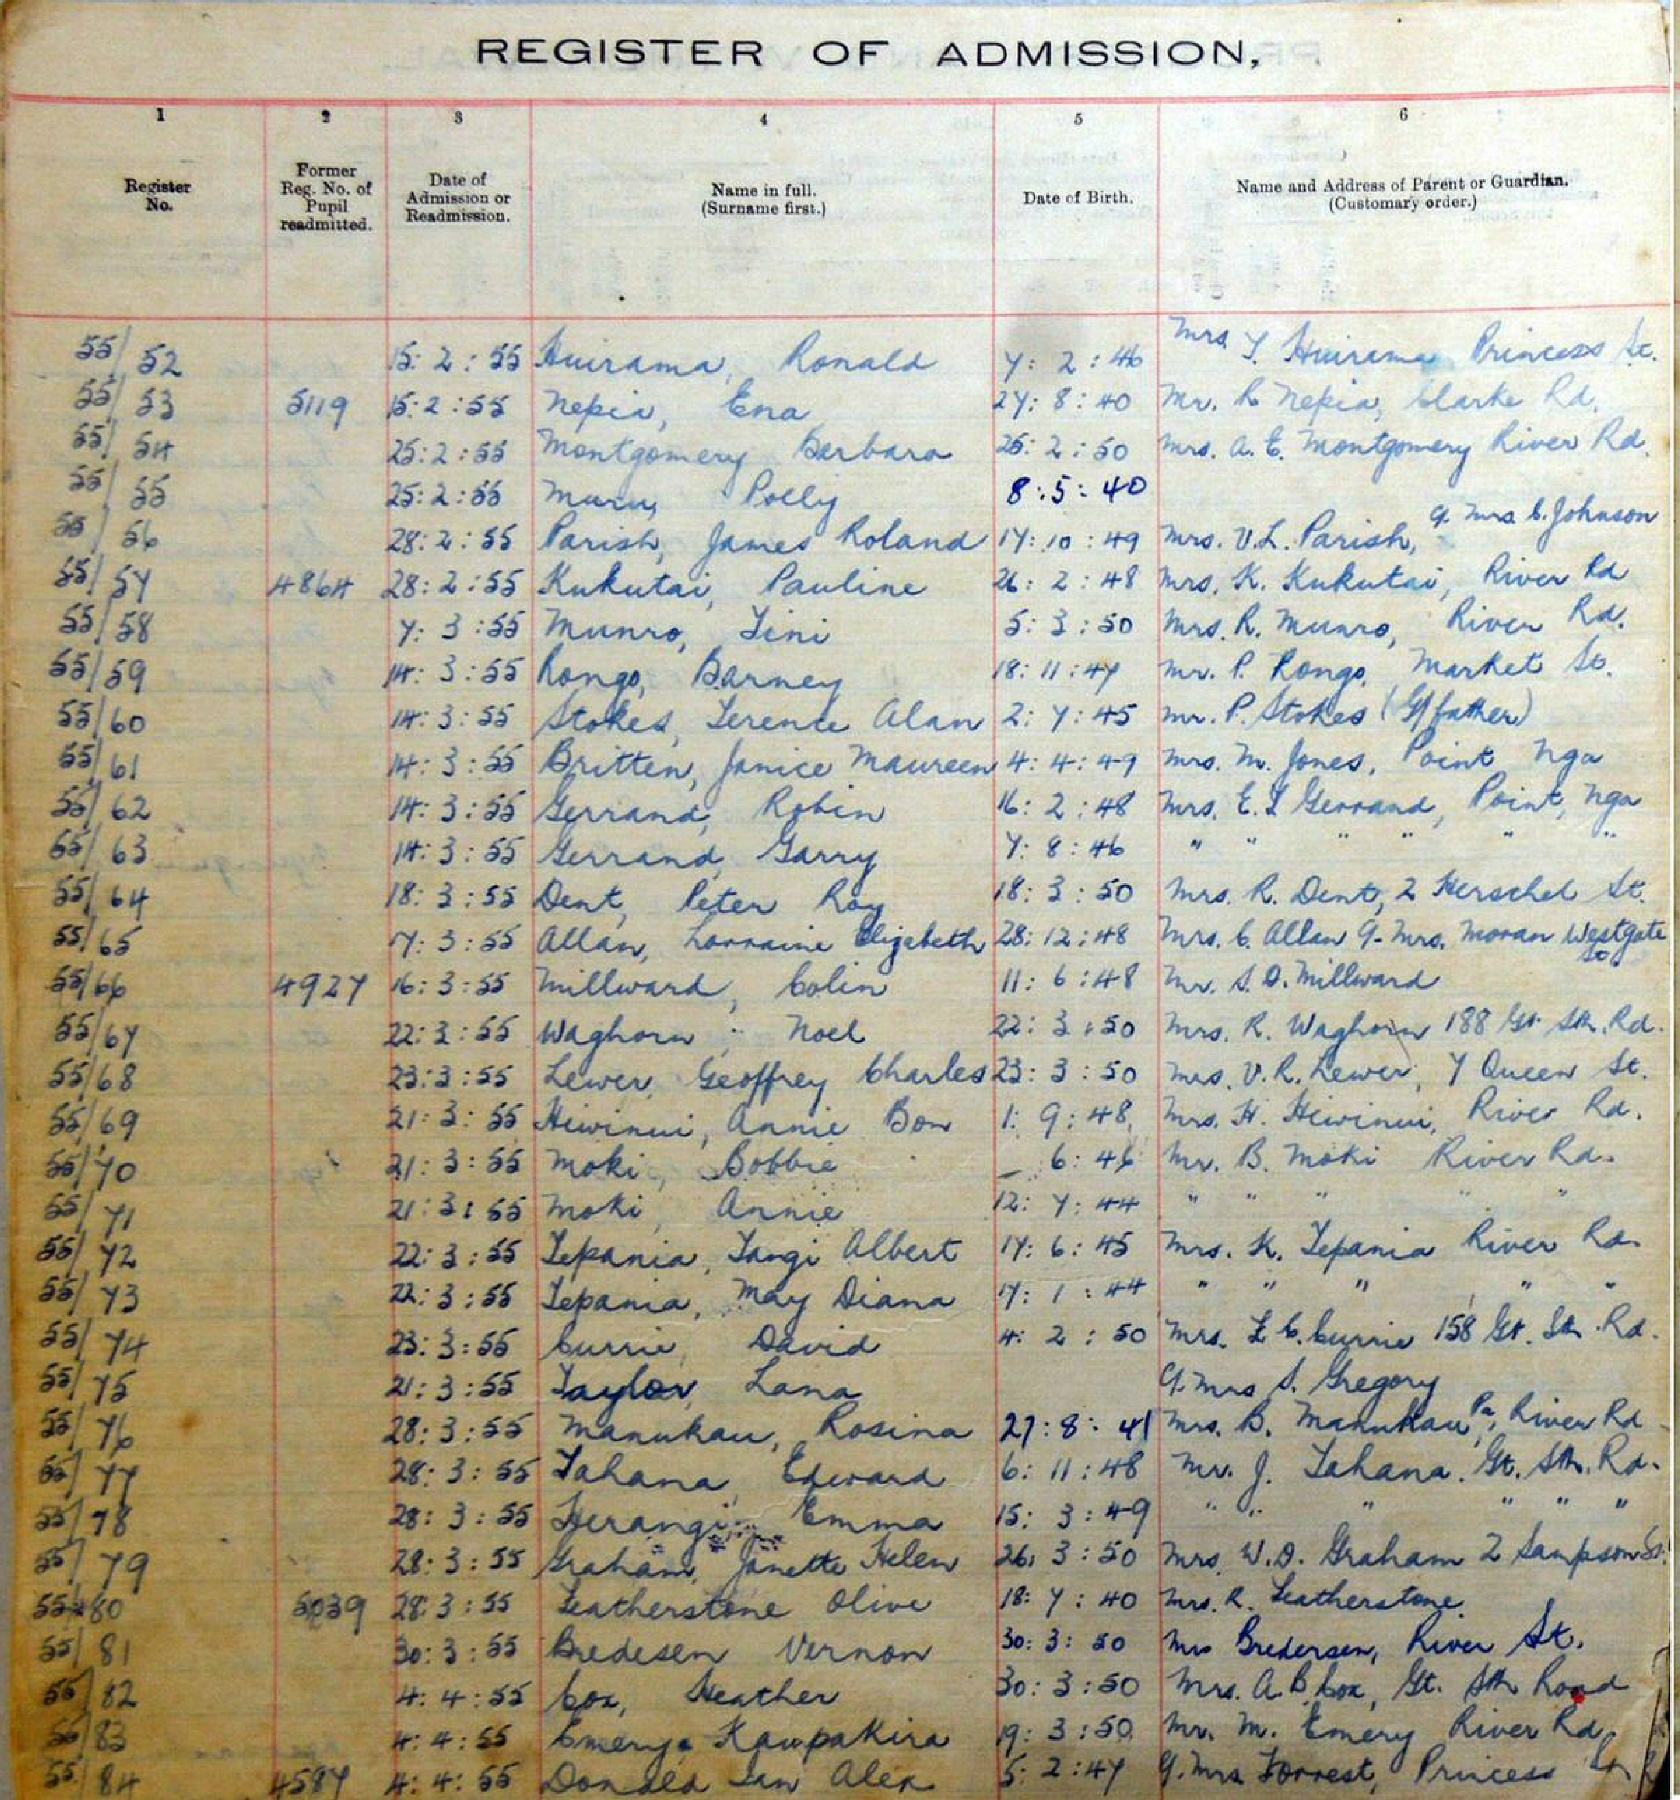 REGISTER OF ADMISSION,
1 2 3 4 5 6
Register No. Former Reg. No. of Pupil readmitted. Date of Admission or Readmission. Name in full. (Surname first.) Date of Birth. Name and Address of Parent or Guardian. (Customary order.)
55/52 15:2:55 Huirama, Ronald 7:2:46 Mrs. T. Huirama Princess St.
55/53 5119 15:2:55 Nepia, Ena 27:8:40 Mr. R Nepia, Clarke Rd.
55/54 25:2:55 Montgomery Barbara 25:2:50 Mrs. A. E. Montgomery River Rd.
55/55 25:2:55 Muru, Polly 8:5:40
55/56 28:2:55 Parish, James Roland 17:10:49 Mrs. V.L. Parish, G. Mrs C. Johnson
55/57 4864 28:2:55 Kukutai, Pauline 26:2:48 Mrs. K. Kukutai, River Rd
55/58 7:3:55 Munro, Tini 5:3:50 Mrs. R. Munro, River Rd.
55/59 14:3:55 Rongo, Barney 18:11:47 Mr. P. Rongo, Market St.
55/60 14:3:55 Stokes, Terence Alan 2:7:45 Mr. P. Stokes (G/father)
55/61 14:3:55 Britten, Janice Maureen 4:4:49 Mrs. M. Jones, Point Nga
55/62 14:3:55 Gerrand, Robin 16:2:48 Mrs. E. I Gerrand, Point, Nga
55/63 14:3:55 Gerrand, Garry 7:8:46 " " " " " "
55/64 18:3:55 Dent, Peter Roy 18:3:50 Mrs. R. Dent, 2 Herschel St.
55/65 7:3:55 Allan, Lorraine Elizabeth 28:12:48 Mrs. C. Allan G. Mrs. Moran Westgate St
55/66 4927 16:3:55 Millward, Colin 11:6:48 Mr. S. D. Millward
55/67 22:3:55 Waghorn, Noel 22:3:50 Mrs. R. Waghorn 188 Gt Sth. Rd.
55/68 23:3:55 Lewer, Geoffrey Charles 23:3:50 Mrs. V. R. Lewer, 7 Queen St.
55/69 21:3:55 Hiwinui, Annie Bon 1:9:48 Mrs. H. Hiwinui, River Rd.
55/70 21:3:55 Moki, Bobbie _ 6:46 Mr. B. Moki River Rd.
55/71 21:3:55 Moki, Annie 12:7:44 " " " " "
55/72 22:3:55 Tepania, Tangi Albert 17:6:45 Mrs. K. Tepania River Rd.
55/73 22:3:55 Tepania, May Diana 17:1:44 " " " " "
55/74 23:3:55 Currie, David 4:2:50 Mrs. L. C. Currie 158 Gt. Sth. Rd.
55/75 21:3:55 Taylor, Lana G. Mrs S. Gregory
55/76 28:3:55 Manukau, Rosina 27:8:41 Mrs. B. Manukau Pa, River Rd
55/77 28:3:55 Tahana, Edward 6:11:48 Mr. J. Tahana. Gt. Sth. Rd.
55/78 28:3:55 Herangi Emma 15:3:49 " " " " " "
55/79 28:3:55 Graham, Janette Helen 26:3:50 Mrs. W. D. Graham 2 Sampson St.
55/80 5039 28:3:55 Leatherstone Olive 18:7:40 Mrs. R. Leatherstone.
55/81 30:3:55 Bredesen Vernon 30:3:50 Mrs Bredersen, River St.
55/82 4:4:55 Cox, Heather 30:3:50 Mrs. A. B. Cox, Gt. Sth Road
55/83 4:4:55 Emery, Kaupakira 19:3:50 Mr. M. Emery River Rd.
55/84 4587 4:4:55 Donald Ian Alex 5:2:47 G. Mrs Forrest, Princess